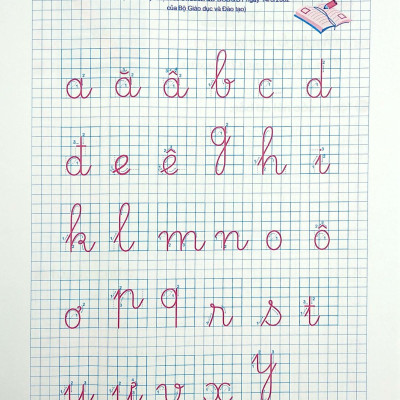 của Bộ Giáo dục và Đào tạo)
a ă â b c d
đ e ê g h i
k l m n o ô
ơ p q r s t
u ư v x y